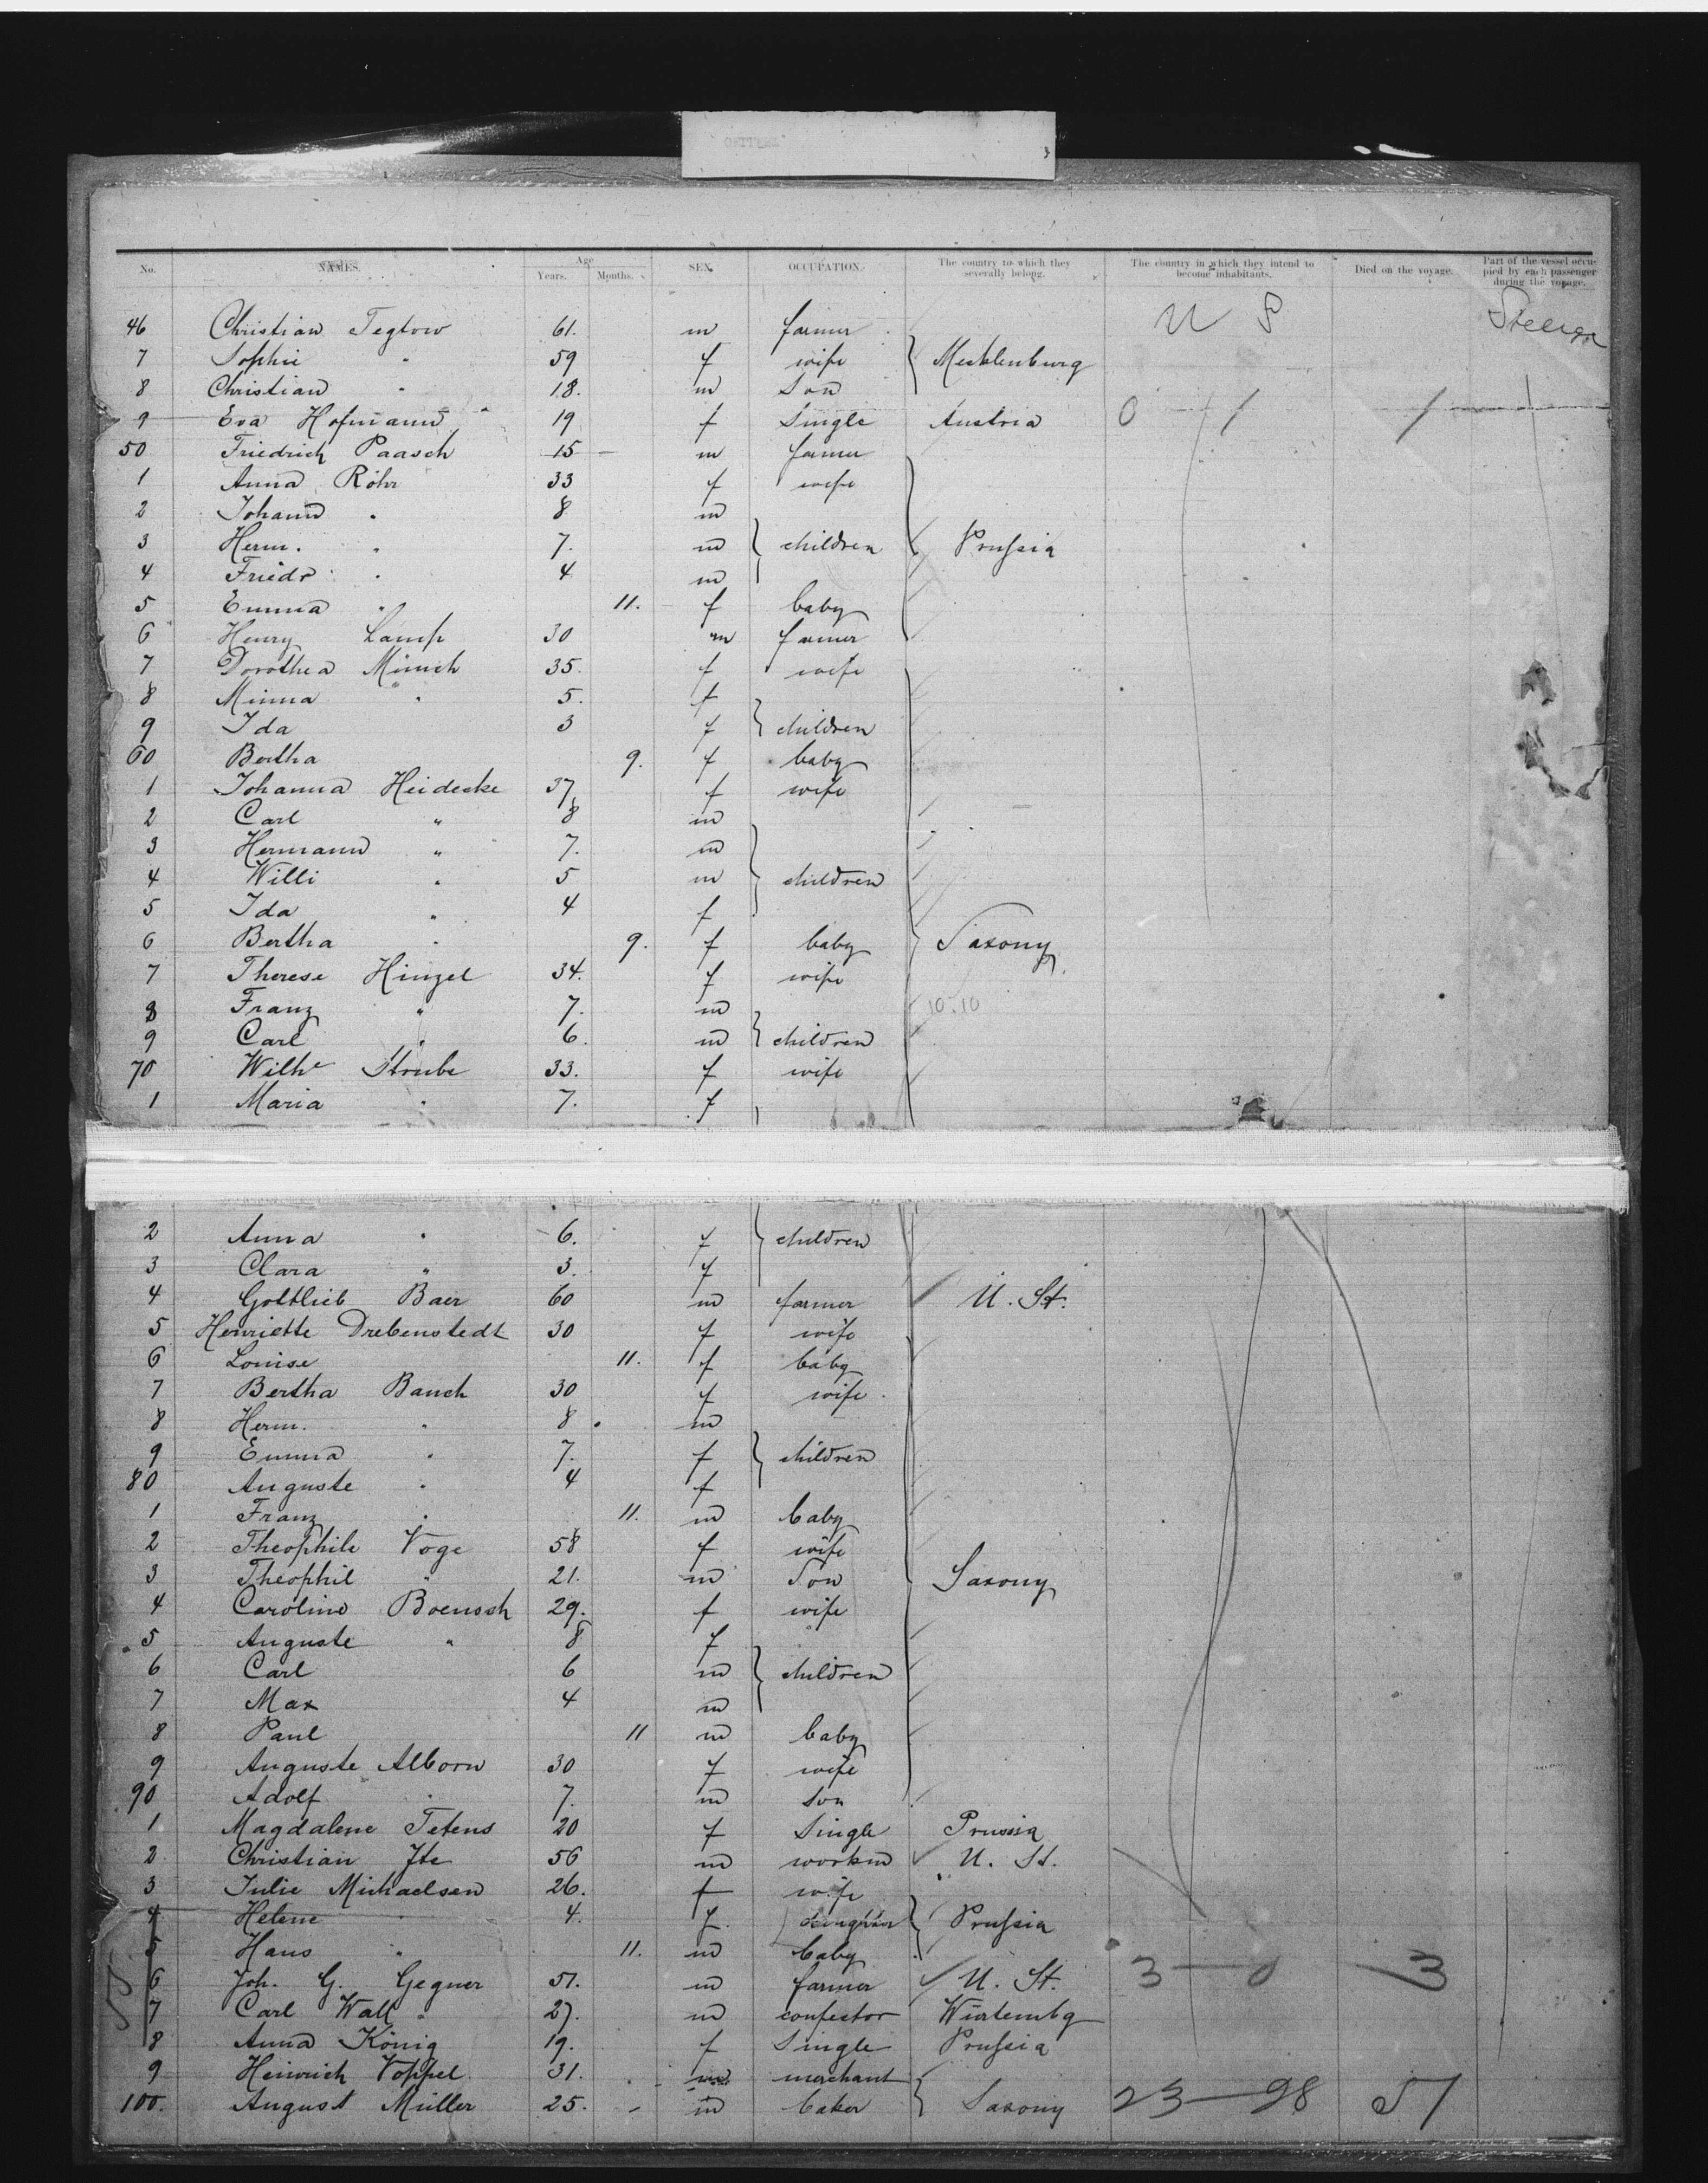 No. NAMES. Age Years. Months. SEX. OCCUPATION. The country to which they severally belong. The country in which they intend to become inhabitants. Died on the voyage. Part of the vessel occupied by each passenger during the voyage.
46 Christian Tegtow 61. m farmer U S
7 Sophie " 59 f wife Mecklenburg
8 Christian " 18. m Son
9 Eva Hofmann 19 f Single Austria 0 1 1
50 Friedrich Paasch 15 m farmer
1 Anna Röhr 33 f wife
2 Johann " 8 m
3 Herm. " 7. m children Prussia
4 Friedr " 4 m
5 Emma " 11. f baby
6 Henry Lamp 30 m farmer
7 Dorothea Münch 35. f wife
8 Minna " 5. f
9 Ida 3 f children
60 Bertha 9. f baby
1 Johanna Heidecke 37 f wife
2 Carl " 8 m
3 Hermann " 7. m
4 Willi " 5 m children
5 Ida " 4 f
6 Bertha " 9. f baby Saxony
7 Therese Hinzel 34. f wife
8 Franz " 7. m 10.10
9 Carl " 6. m children
70 Wilhe Strube 33. f wife
1 Maria " 7. f
2 Anna " 6. f children
3 Clara " 3. f
4 Gottlieb Baer 60 m farmer U. St.
5 Henriette Drebenstedt 30 f wife
6 Louise 11. f baby
7 Bertha Banch 30 f wife
8 Herm. " 8 m
9 Emma " 7. f children
80 Auguste " 4 f
1 Franz " 11. m baby
2 Theophile Voge 58 f wife
3 Theophil " 21. m Son Saxony
4 Caroline Boensch 29. f wife
5 Auguste " 8 f
6 Carl 6 m children
7 Max 4 m
8 Paul 11 m baby
9 Auguste Alborn 30 f wife
90 Adolf " 7. m Son
1 Magdalene Tetens 20 f Single Prussia
2 Christian Jte 56 m workm U. St.
3 Julie Michaelsen 26. f wife
4 Helene " 4. f Prussia
5 Hans " 11. m baby
6 Joh. G. Gegner 51. m farmer U. St. 3 0 3
7 Carl Wall 27. m confector Würtembg
8 Anna König 19. f Single Prussia
9 Heinrich Voppel 31. m merchant
100. August Müller 25. m baker Saxony 23 — 28 51